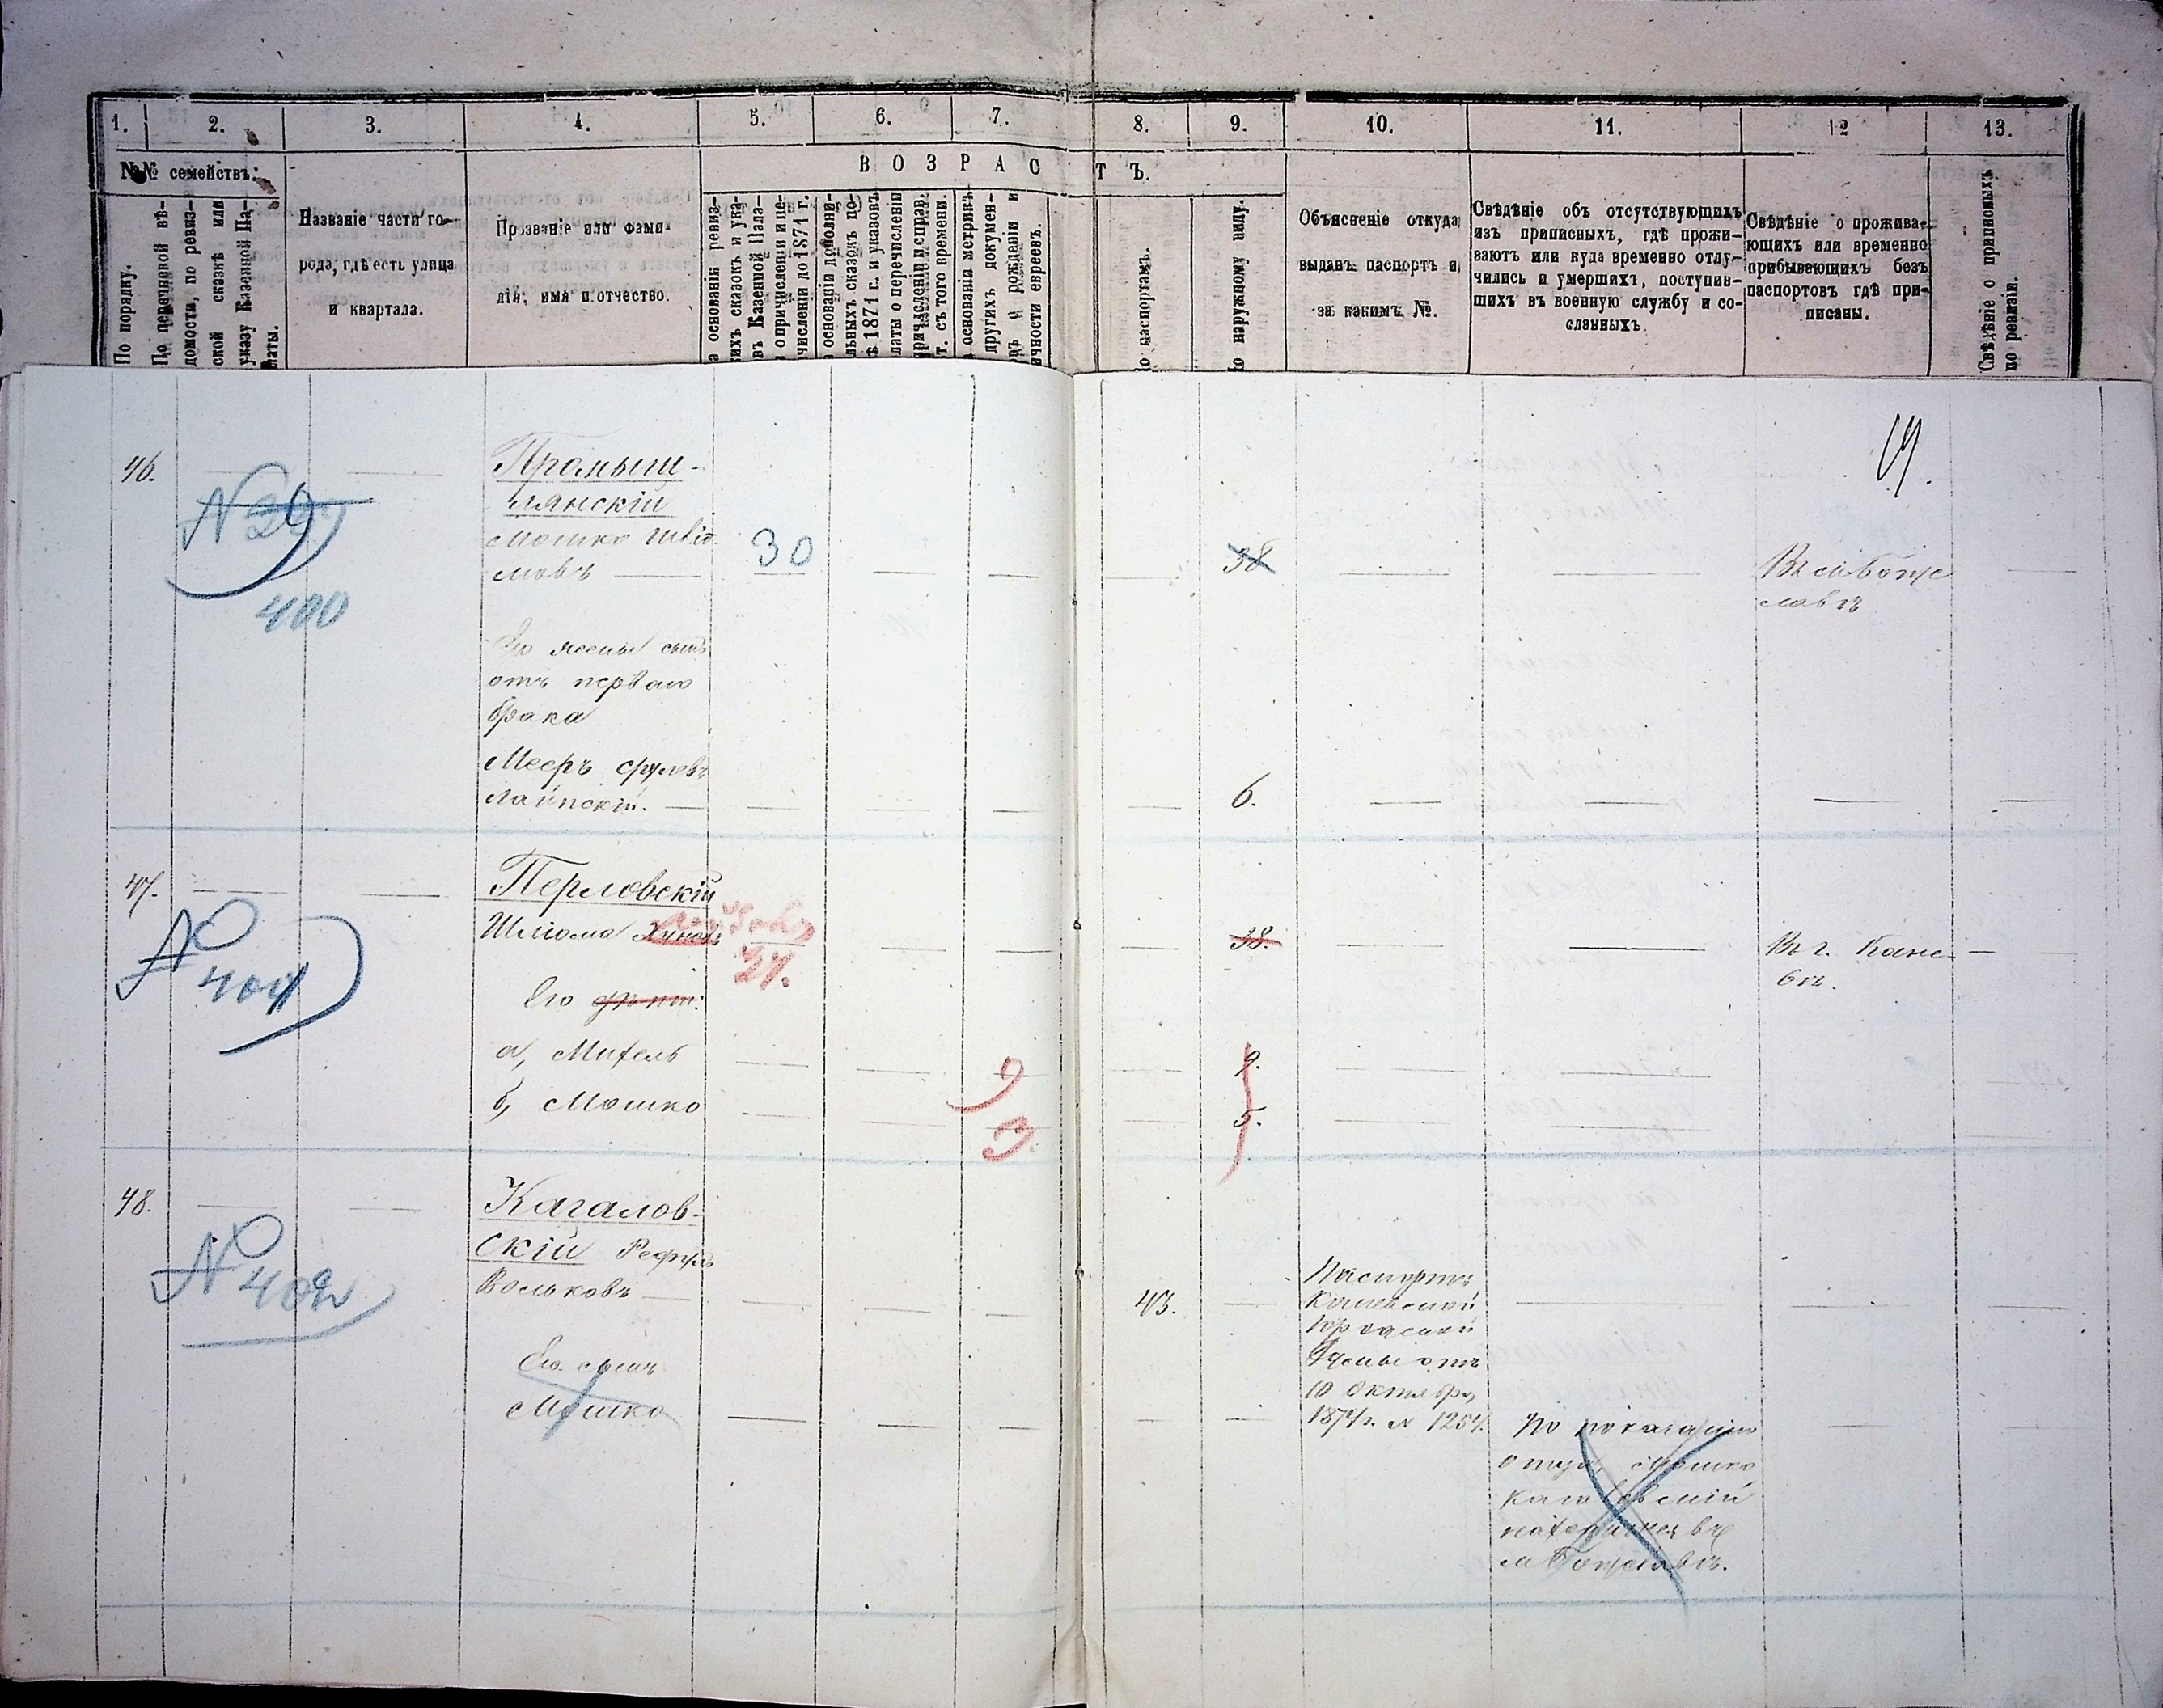 1.
2.
3.
4.
5.
6.
7.
8.
9.
10.
11.
12
13.
№№ семействъ.
ВОЗРАСТЪ.
По порядку.
По перечневой вѣ-
домости, по ревиз-
ской сказкѣ или
указу Казенной Па-
латы.
Названіе части го-
рода, гдѣ есть улица
и квартала.
Прозваніе или фами-
лія, имя и отчество.
а основаніи ревиз-
кихъ сказокъ и ука-
въ Казенной Пала-
о причисленіи и пе-
числении до 1871 г.
основаніи дополни-
льныхъ сказокъ по-
ѣ 1871 г. и указовъ
латы о перечисленіи
причисленіи и справ.
т. съ того времени.
основаніи метрикъ
другихъ докумен-
въ о рожденіи и
ичности евреевъ.
о паспортамъ.
о наружному виду.
Объясненіе откуда
выданъ паспортъ и
за какимъ №.
Свѣдѣніе объ отсутствующихъ
изъ приписныхъ, гдѣ прожи-
ваютъ или куда временно отлу-
чились и умершихъ, поступив-
шихъ въ военную службу и со-
сланныхъ
Свѣдѣніе о прожива-
ющихъ или временно
прибывающихъ безъ
паспортовъ гдѣ при-
писаны.
Свѣдѣніе о приписныхъ
по ревизіи.
19.
46.
№
400
Промыш-
лянскій
Мошко
мовъ
30
38
Въ м. Богу
славѣ
Его жены сынъ
отъ перваго
брака
Мееръ Срулевъ
Лайпскій.
6.
47.
№
401
Перловскій
Шліома Хуновъ
37.
38.
Въ г. Кане-
вѣ.
Его дѣти:
а, Михель
9
9.
б, Мошко
3.
5.
48.
№ 402
Кагалов-
скій Рефулъ
Вольковъ
43.
Паспортъ
Каневской
Городской
Думы отъ
10 Октября
1874 г. № 1257.
Его сынъ
Мошко
По показанію
отца, Мошко
Кагаловскій
находится въ
м. Богуславѣ.